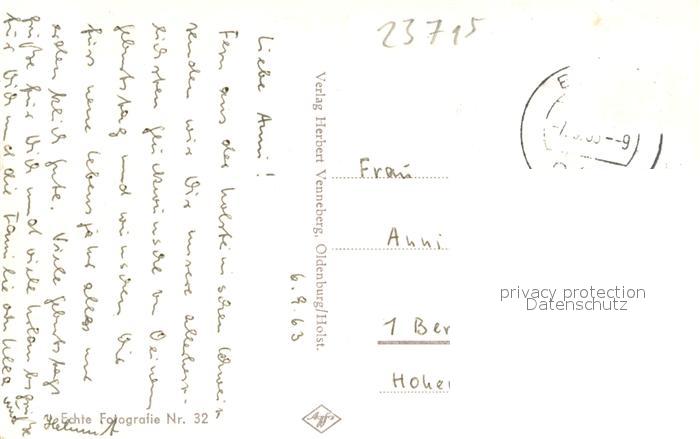 23715
Liebe Anni!
Fern aus der holsteinischen Schweiz
senden wir Dir unsere allerherz-
lichsten Glückwünsche zu Deinem
Geburtstag und wünschen Dir
fürs neue Lebensjahr alles nur
Gute. Viele Geburtstags
grüße für Dich und viele Urlaubsgrüße
für Dich und die Familie
Helmut
6.9.63
Verlag Herbert Venneberg, Oldenburg/Holst.
Echte Fotografie Nr. 32
Agfa
Frau
Anni
1 Ber
Hohe
privacy protection
Datenschutz